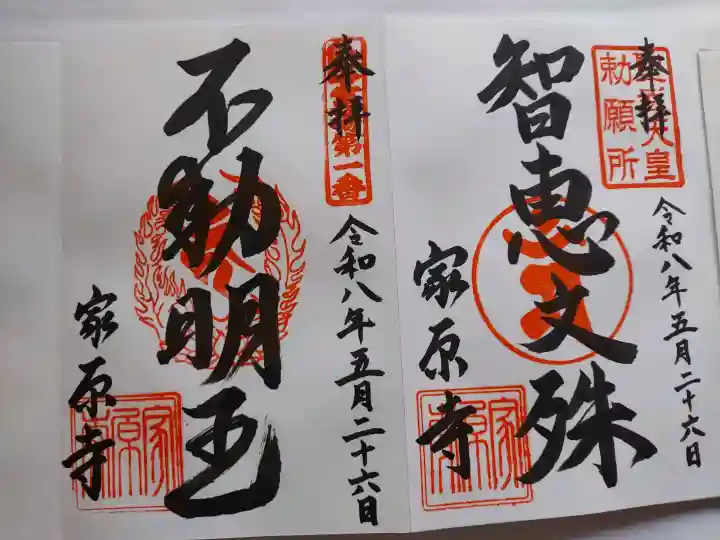 奉拝
勅願所
智恵文殊
令和八年五月二十六日
家原寺
家原寺
奉拝
第一番
不動明王
令和八年五月二十六日
家原寺
家原寺